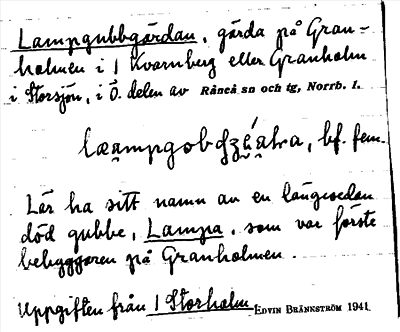 Lampgubbgärdan, gärda på Gran-
holmen i 1 Kvarnberg eller Granholm
i Storsjön, i ö. delen av Råneå sn och tg, Norrb. l.
bf. fem.
Lär ha sitt namn av en längesedan
död gubbe, Lampa, som var förste
bebyggaren på Granholmen.
Uppgiften från 1 Storholm EDVIN BRÄNNSTRÖM 1941.